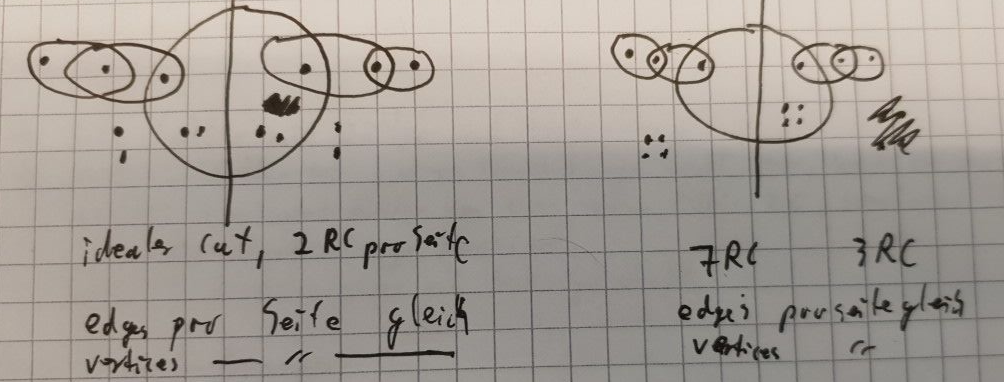 idealer cut, 2 RC pro Seite
7RC 3RC
edges pro Seite gleich
vertices — " —
edges pro seite gleich
vertices "